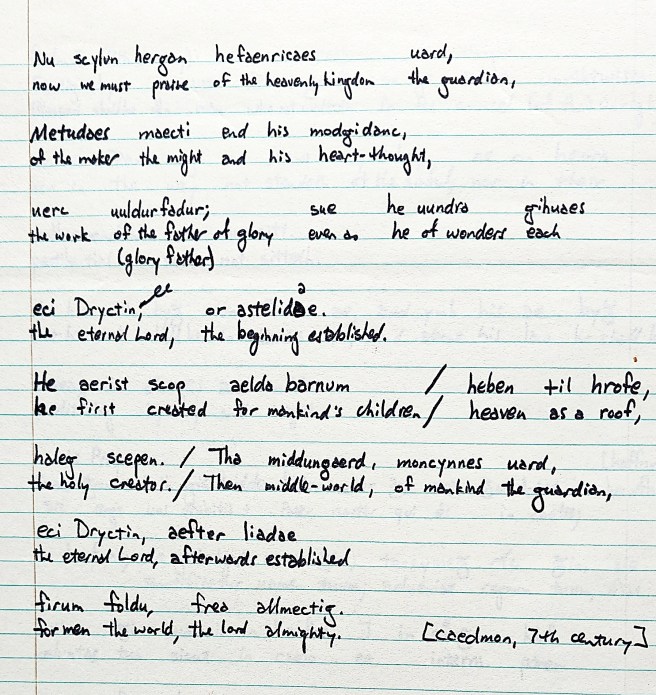 Nu scylun hergan hefaenricaes uard,
now we must praise of the heavenly kingdom the guardian,
Metudaes maecti end his modgidanc,
of the maker the might and his heart-thought,
uerc uuldurfadur; sue he uundra gihuaes
the work of the father of glory even as he of wonders each
(glory father)
eci Dryctin, or astelidae.
the eternal Lord, the beginning established.
He aerist scop aelda barnum / heben til hrofe,
he first created for mankind's children / heaven as a roof,
haleg scepen. / Tha middungaerd, moncynnes uard,
the holy creator. / Then middle-world, of mankind the guardian,
eci Dryctin, aefter tiadae
the eternal Lord, afterwards established
firum foldu, frea allmectig.
for men the world, the lord almighty. [caedmon, 7th century]